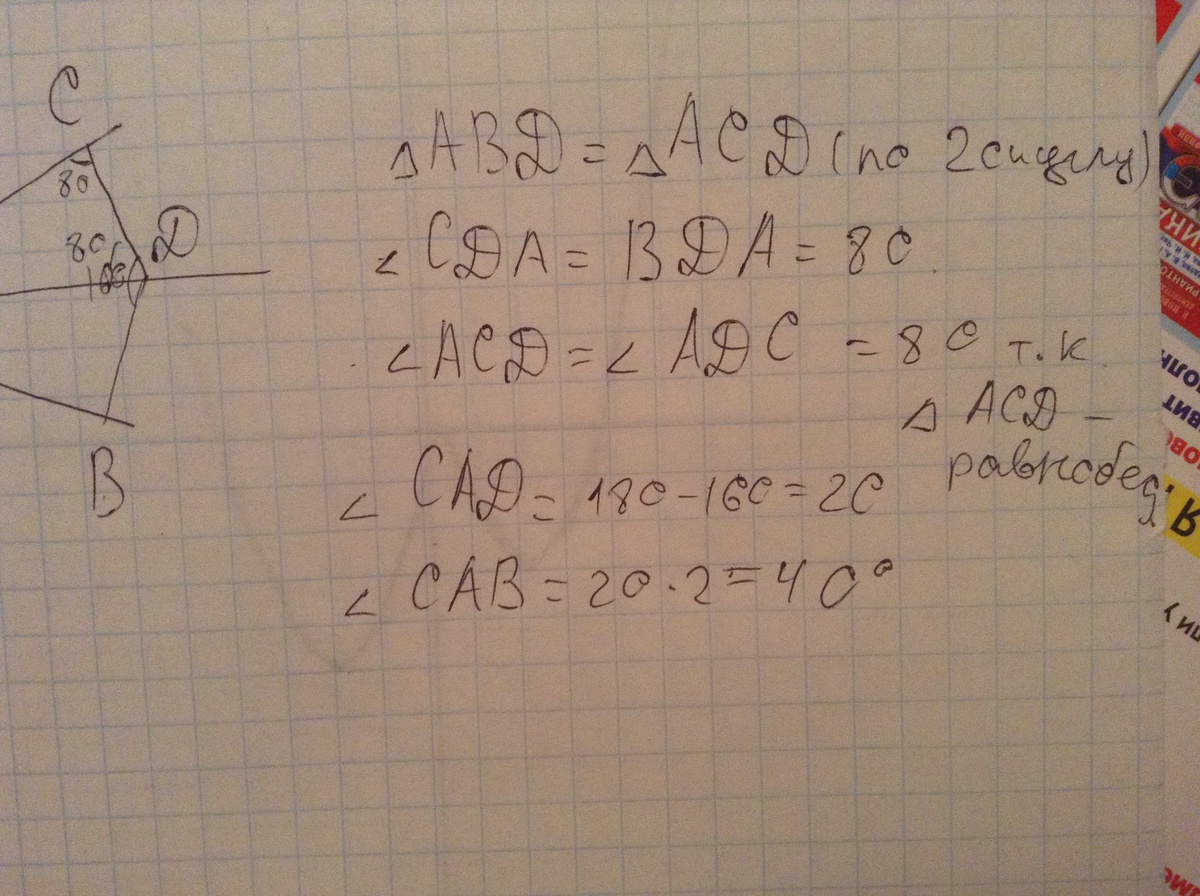 C
80
80
160
D
B
△ABD = △ACD (по 2 си углу)
∠CDA = BDA = 80
∠ACD = ∠ADC = 80 т.к
△ ACD –
равнобед.
∠ CAD = 180 - 160 = 20
∠ CAB = 20 · 2 = 40°